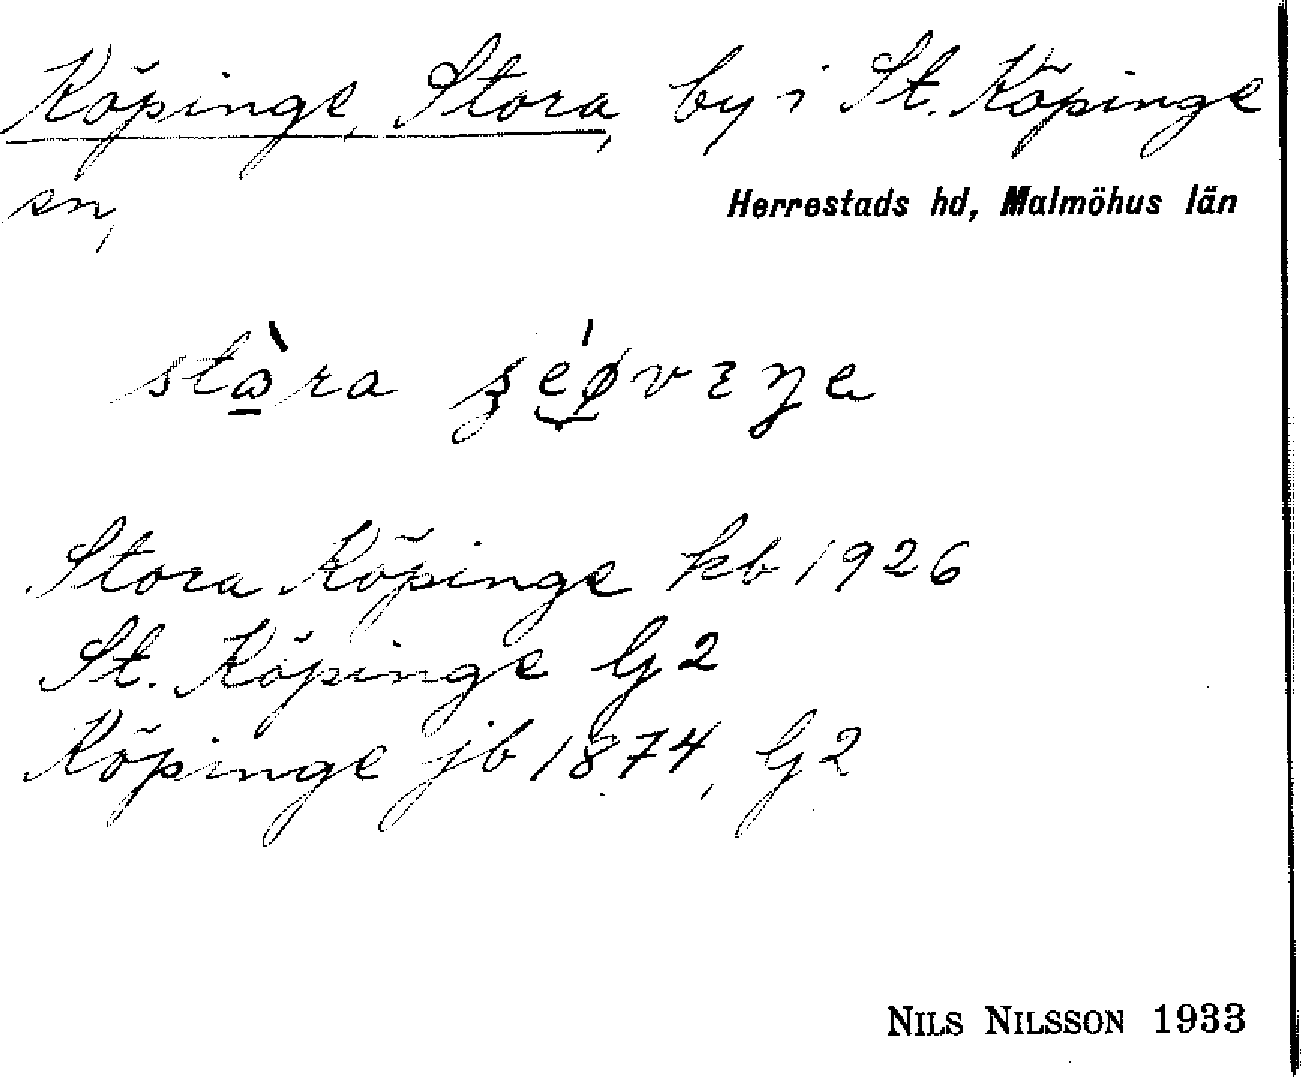 Köpinge, Stora, by i St. Köpinge
sn,
Herrestads hd, Malmöhus län
Stora Köpinge kb 1926
St. Köpinge G 2
Köpinge jb 1874, G 2
NILS NILSSON 1933